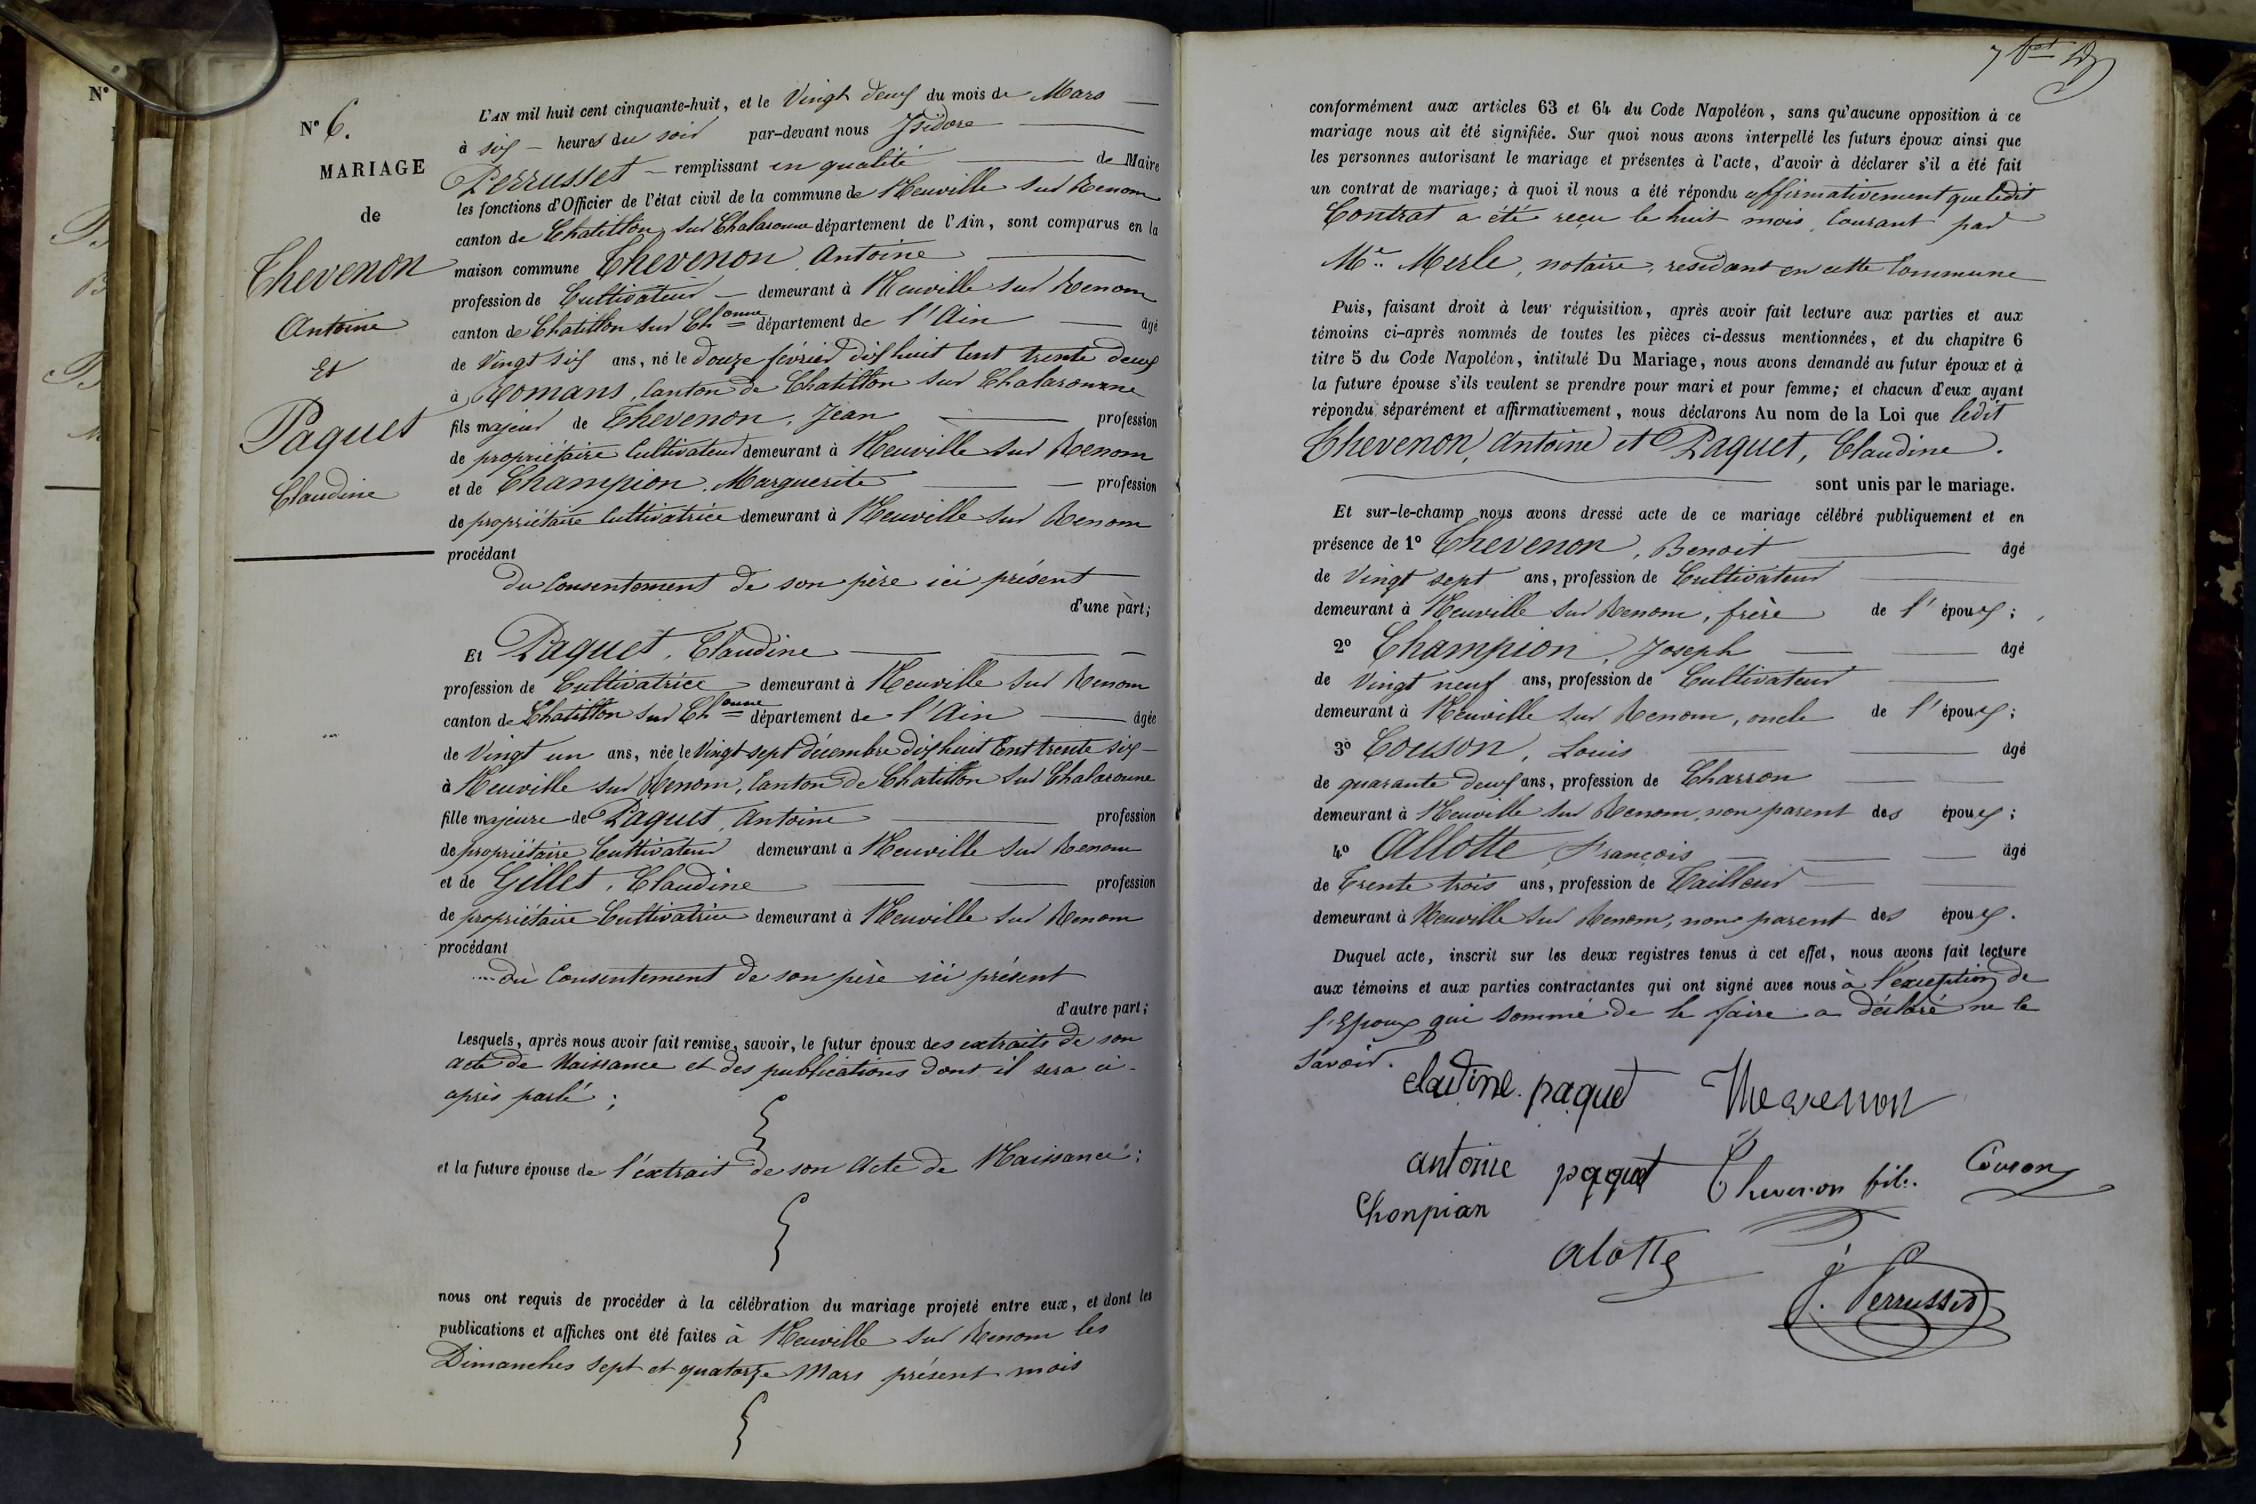 N°
N° 6.
MARIAGE
de
Thevenon
Antoine
Et
Paquet
Claudine
L'AN mil huit cent cinquante-huit, et le Vingt deux du mois de Mars
à six heures du soir par-devant nous Isidore
Perrusset remplissant en qualité de Maire
les fonctions d'Officier de l'état civil de la commune de Neuville sur Renom
canton de Chatillon sur Chalaronne département de l'Ain, sont comparus en la
maison commune Thevenon, Antoine
profession de Cultivateur demeurant à Neuville sur Renom
canton de Chatillon sur Chonne département de l'Ain âgé
de Vingt six ans, né le douze février dix huit cent trente deux
à Romans, Canton de Chatillon sur Chalaronne
fils majeur de Thevenon, Jean profession
de propriétaire Cultivateur demeurant à Neuville sur Renom
et de Champion, Marguerite profession
de propriétaire Cultivatrice demeurant à Neuville sur Renom
procédant
du Consentement de son père ici présent
d'une part;
Et Paquet, Claudine
profession de Cultivatrice demeurant à Neuville sur Renom
canton de Chatillon sur Chonne département de l'Ain âgée
de Vingt un ans, née le Vingt sept décembre dix huit Cent trente six
à Neuville sur Renom, Canton de Chatillon sur Chalaronne
fille majeure de Paquet, Antoine profession
de propriétaire Cultivateur demeurant à Neuville sur Renom
et de Gillet, Claudine profession
de propriétaire Cultivatrice demeurant à Neuville sur Renom
procédant
du Consentement de son père ici présent
d'autre part;
Lesquels, après nous avoir fait remise, savoir, le futur époux des extraits de son
acte de Naissance et des publications dont il sera ci-
après parlé;
et la future épouse de l'extrait de son Acte de Naissance;
nous ont requis de procéder à la célébration du mariage projeté entre eux, et dont les
publications et affiches ont été faites à Neuville sur Renom les
Dimanches sept et quatorze Mars présent mois
conformément aux articles 63 et 64 du Code Napoléon, sans qu'aucune opposition à ce
mariage nous ait été signifiée. Sur quoi nous avons interpellé les futurs époux ainsi que
les personnes autorisant le mariage et présentes à l'acte, d'avoir à déclarer s'il a été fait
un contrat de mariage; à quoi il nous a été répondu affirmativement que ledit
Contrat a été reçu le huit mois Courant par
Me Merle, notaire, residant en cette Commune
Puis, faisant droit à leur réquisition, après avoir fait lecture aux parties et aux
témoins ci-après nommés de toutes les pièces ci-dessus mentionnées, et du chapitre 6
titre 5 du Code Napoléon, intitulé Du Mariage, nous avons demandé au futur époux et à
la future épouse s'ils veulent se prendre pour mari et pour femme; et chacun d'eux ayant
répondu séparément et affirmativement, nous déclarons Au nom de la Loi que ledit
Thevenon, Antoine et Paquet, Claudine.
sont unis par le mariage.
Et sur-le-champ nous avons dressé acte de ce mariage célébré publiquement et en
présence de 1° Thevenon, Benoit âgé
de Vingt sept ans, profession de Cultivateur
demeurant à Neuville sur Renom, frère de l'époux;
2° Champion, Joseph âgé
de Vingt neuf ans, profession de Cultivateur
demeurant à Neuville sur Renom, oncle de l'époux;
3° Couson, Louis âgé
de quarante deux ans, profession de Charron
demeurant à Neuville sur Renom, non parent des époux;
4° Allotte François âgé
de Trente trois ans, profession de Tailleur
demeurant à Neuville sur Renom, non parent des époux.
Duquel acte, inscrit sur les deux registres tenus à cet effet, nous avons fait lecture
aux témoins et aux parties contractantes qui ont signé avec nous à l'exception de
l'Epoux qui sommé de le faire a déclaré ne le
savoir.
cladine paquet Thevenon
antoine paquet Thevenon fils Couson
Chonpian
alotte
J. Perrusset